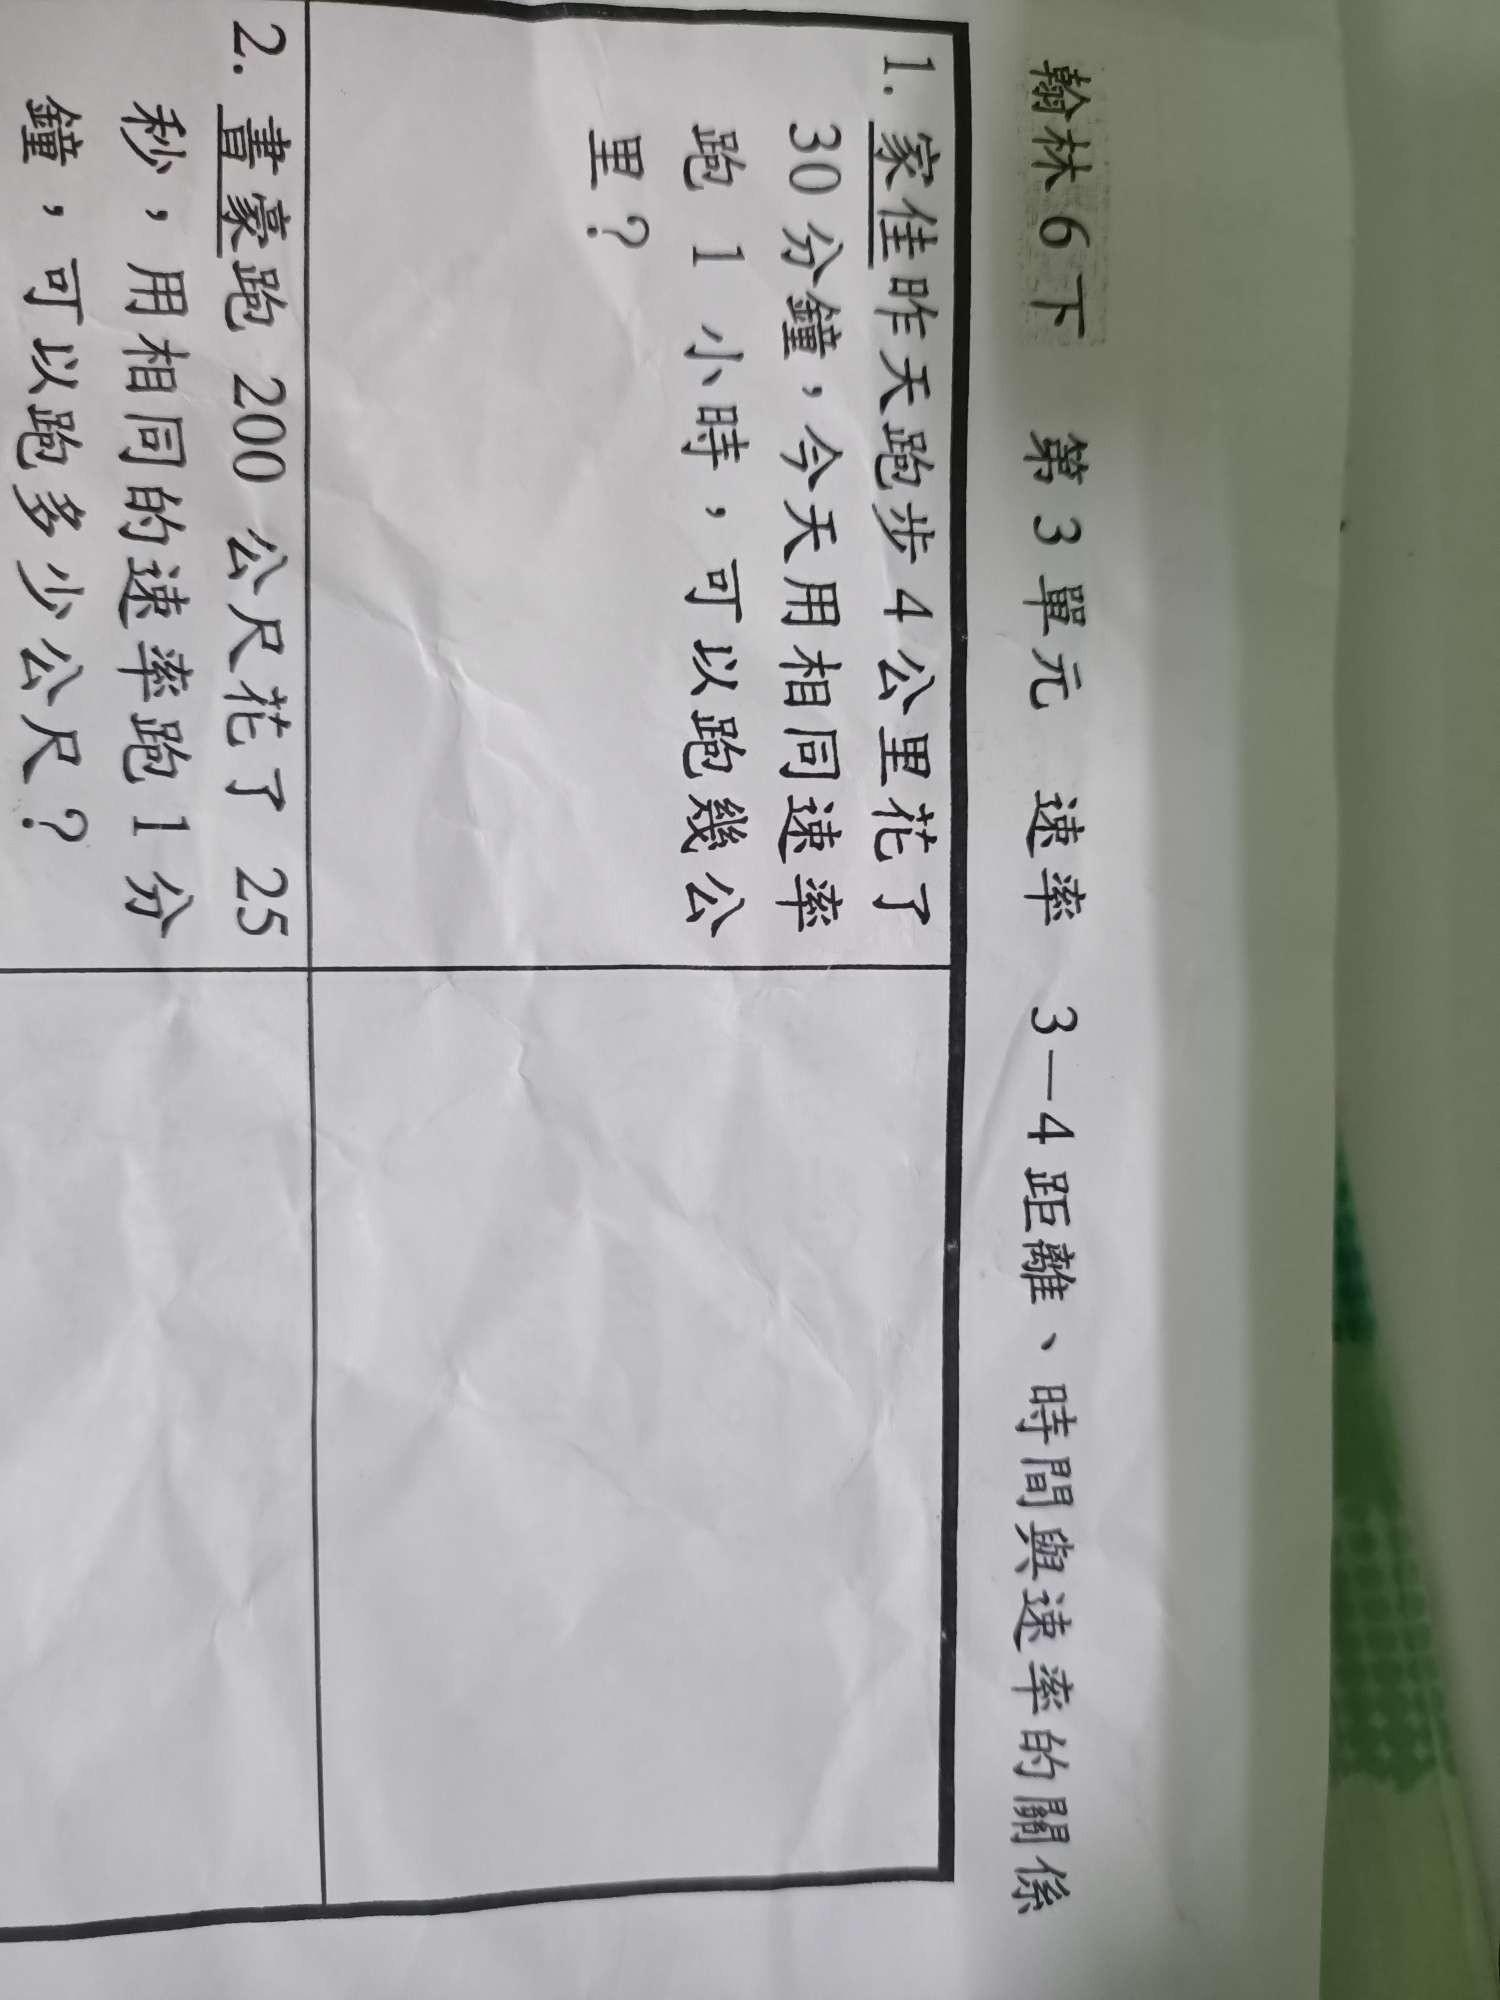 翰林6下 第3單元 速率 3－4距離、時間與速率的關係
1. 家佳昨天跑步4公里花了
30分鐘，今天用相同速率
跑 1 小時，可以跑幾公
里？
2. 書豪跑 200 公尺花了 25
秒，用相同的速率跑1分
鐘，可以跑多少公尺？